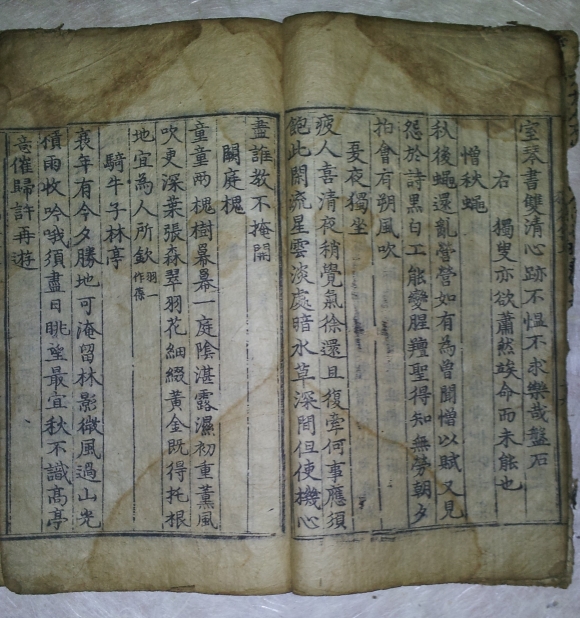 室琴書雙清心跡不慍不求樂哉盤石
右　獨叟亦欲蕭然竢命而未能也
憎秋蠅
秋後蠅還亂營營如有為曾聞憎以賦又見
怨於詩黑白工能變腥羶聖得知無勞朝夕
拍會有朔風吹
夏夜獨坐
疲人喜清夜稍覺氣徐還且復牽何事應須
飽此閒流星雲淡處暗水草深間但使機心
盡誰教不掩關
闕庭槐
童童兩槐樹羃羃一庭陰湛露濕初重薰風
吹更深葉張森翠羽花細綴黃金既得托根
地宜為人所欽羽作葆
騎牛子林亭
衰年有今夕勝地可淹留林影微風過山光
積雨收吟哦須盡日眺望最宜秋不識高亭
意催歸許再遊